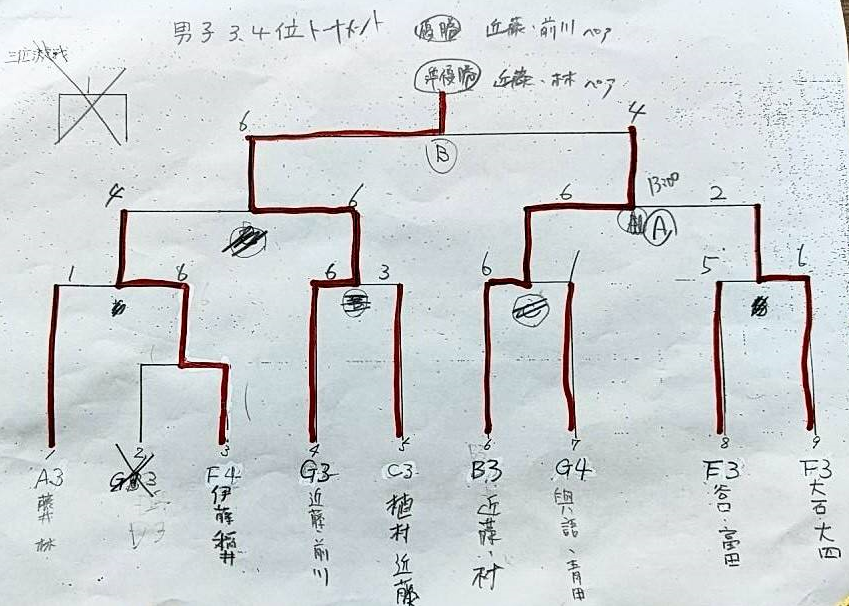 男子 3.4位トーナメント 優勝 近藤・前川 ペア
三位決戦
準優勝 近藤・林 ペア
1
6 4
B
4 6 6 2
A
1 6 6 3 6 1 5 6
1 2 3 4 5 6 7 8 9
A3 F4 G3 C3 B3 G4 E3 F3
藤井 林
伊藤 稲井
近藤・前川
植村 近藤
近藤・村
與語・青田
谷口・富田
大石・大四